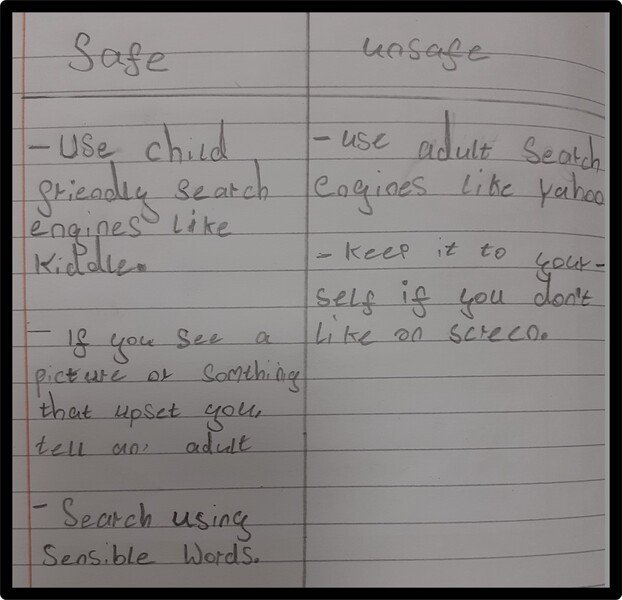 Safe
- Use child
friendly search
engines like
Kiddle.
- If you see a
picture or somthing
that upset you,
tell an, adult
- Search using
Sensible Words.
unsafe
- use adult search
engines like yahoo
- keep it to your-
self if you don't
like on screen.